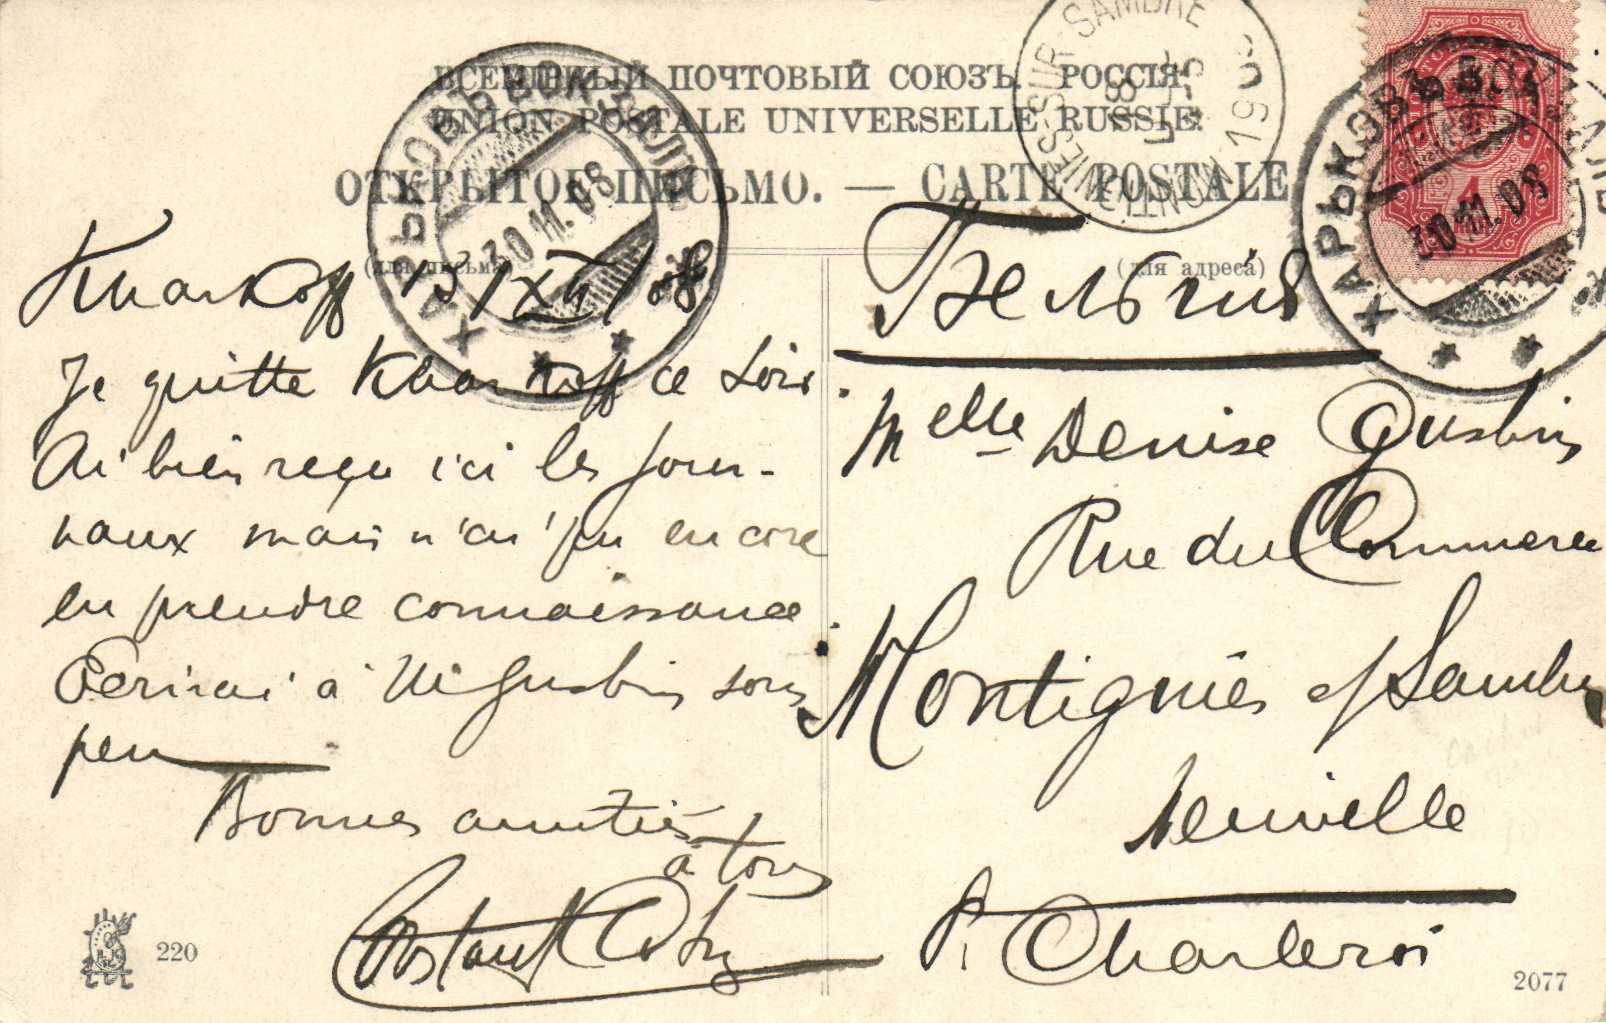 ВСЕМІРНЫЙ ПОЧТОВЫЙ СОЮЗЪ. РОССІЯ.
UNION POSTALE UNIVERSELLE RUSSIE.
ОТКРЫТОЕ ПИСЬМО. — CARTE POSTALE
(для письма)
(для адреса)
ХАРЬКОВЪ ВОКЗАЛЪ
30.11.08
MONTIGNIES-SUR-SAMBRE
ХАРЬКОВЪ ВОКЗАЛЪ
30.11.08
4
Kharkoff 13/XII/08
Je quitte Kharkoff ce soir.
Ai bien reçu ici les jour-
naux mais n'ai pu encore
en prendre connaissance.
Ecrirai à Mr Gusbin sous
peu
Bonnes amitiés
à tous
Constant
Бельгія
Melle Denise Gusbin
Rue du Commerce
Montignies s/ Sambre
Neuville
P. Charleroi
220
2077